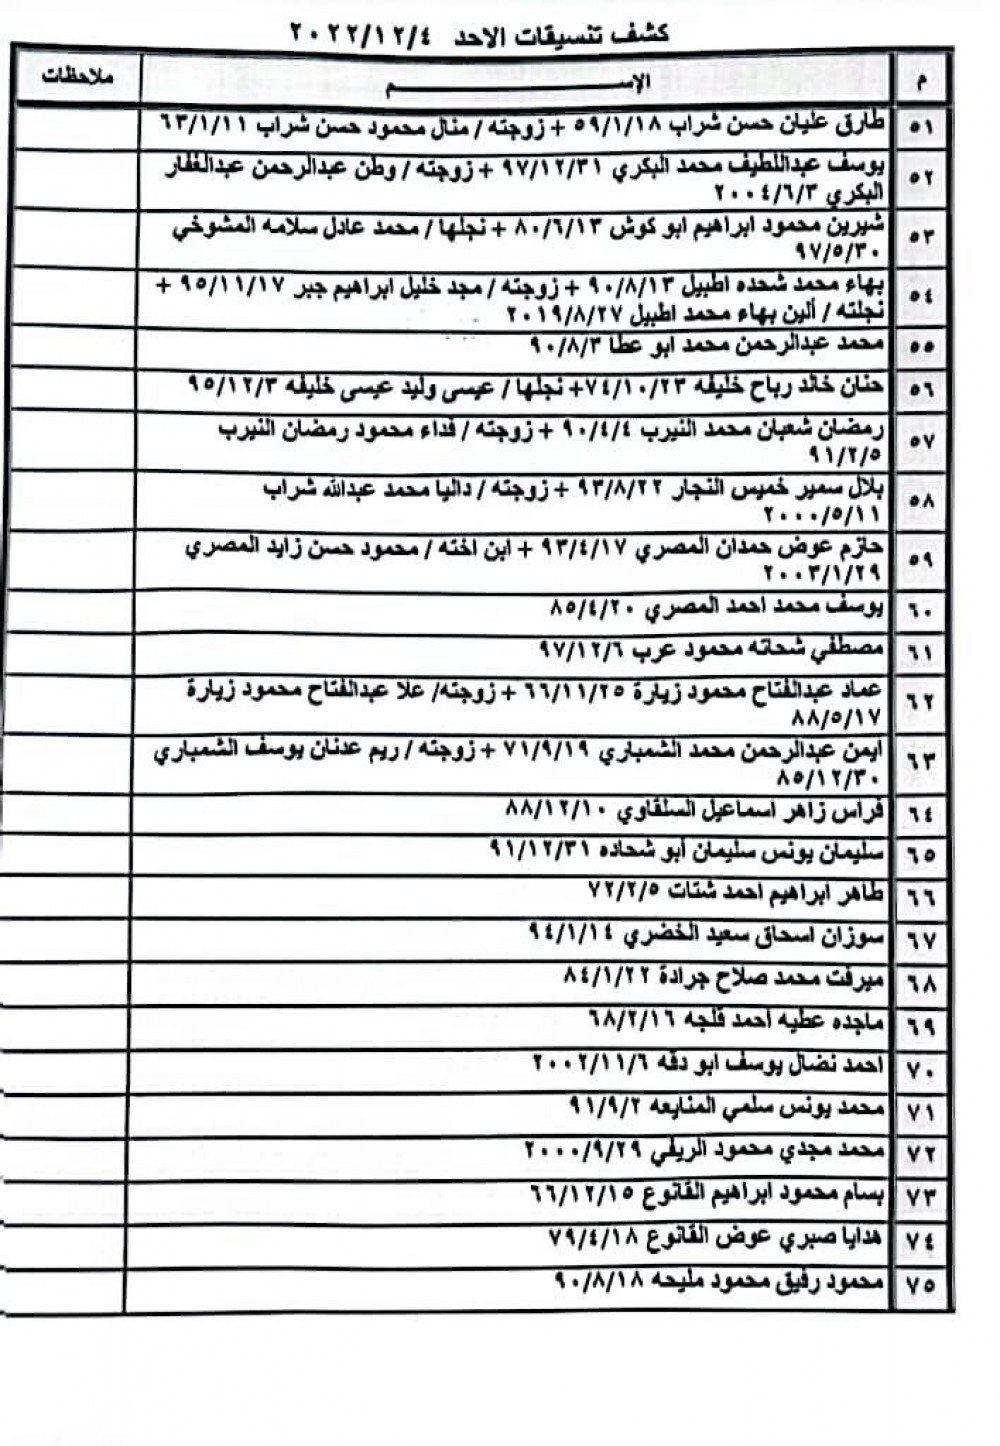 كشف تنسيقات الاحد ٢٠٢٢/١٢/٤
م الإســـــــم ملاحظات
٥١ طارق عليان حسن شراب ٥٩/١/١٨ + زوجته / منال محمود حسن شراب ٦٣/١/١١
٥٢ يوسف عبداللطيف محمد البكري ٩٧/١٢/٣١ + زوجته / وطن عبدالرحمن عبدالغفار
البكري ٢٠٠٤/٦/٣
٥٣ شيرين محمود ابراهيم ابو كوش ٨٠/٦/١٣ + نجلها / محمد عادل سلامه المشوخي
٩٧/٥/٣٠
٥٤ بهاء محمد شحده اطبيل ٩٠/٨/١٣ + زوجته / مجد خليل ابراهيم جبر ٩٥/١١/١٧ +
نجلته / ألين بهاء محمد اطبيل ٢٠١٩/٨/٢٧
٥٥ محمد عبدالرحمن محمد ابو عطا ٩٠/٨/٣
٥٦ حنان خالد رباح خليفه ٧٤/١٠/٢٣+ نجلها / عيسى وليد عيسى خليفه ٩٥/١٢/٣
٥٧ رمضان شعبان محمد النيرب ٩٠/٤/٤ + زوجته / فداء محمود رمضان النيرب
٩١/٢/٥
٥٨ بلال سمير خميس النجار ٩٣/٨/٢٢ + زوجته / داليا محمد عبدالله شراب
٢٠٠٠/٥/١١
٥٩ حازم عوض حمدان المصري ٩٣/٤/١٧ + ابن اخته / محمود حسن زايد المصري
٢٠٠٣/١/٢٩
٦٠ يوسف محمد احمد المصري ٨٥/٤/٢٠
٦١ مصطفي شحاته محمود عرب ٩٧/١٢/٦
٦٢ عماد عبدالفتاح محمود زيارة ٦٦/١١/٢٥ + زوجته/ علا عبدالفتاح محمود زيارة
٨٨/٥/١٧
٦٣ ايمن عبدالرحمن محمد الشمباري ٧١/٩/١٩ + زوجته / ريم عدنان يوسف الشمباري
٨٥/١٢/٣٠
٦٤ فراس زاهر اسماعيل السلقاوي ٨٨/١٢/١٠
٦٥ سليمان يونس سليمان أبو شحاده ٩١/١٢/٣١
٦٦ طاهر ابراهيم احمد شتات ٧٢/٢/٥
٦٧ سوزان اسحاق سعيد الخضري ٩٤/١/١٤
٦٨ ميرفت محمد صلاح جرادة ٨٤/١/٢٢
٦٩ ماجده عطيه احمد قلجه ٦٨/٢/١٦
٧٠ احمد نضال يوسف ابو دقه ٢٠٠٢/١١/٦
٧١ محمد يونس سلمي المنايعه ٩١/٩/٢
٧٢ محمد مجدي محمود الريفي ٢٠٠٠/٩/٢٩
٧٣ بسام محمود ابراهيم القانوع ٦٦/١٢/١٥
٧٤ هدايا صبري عوض القانوع ٧٩/٤/١٨
٧٥ محمود رفيق محمود مليحه ٩٠/٨/١٨